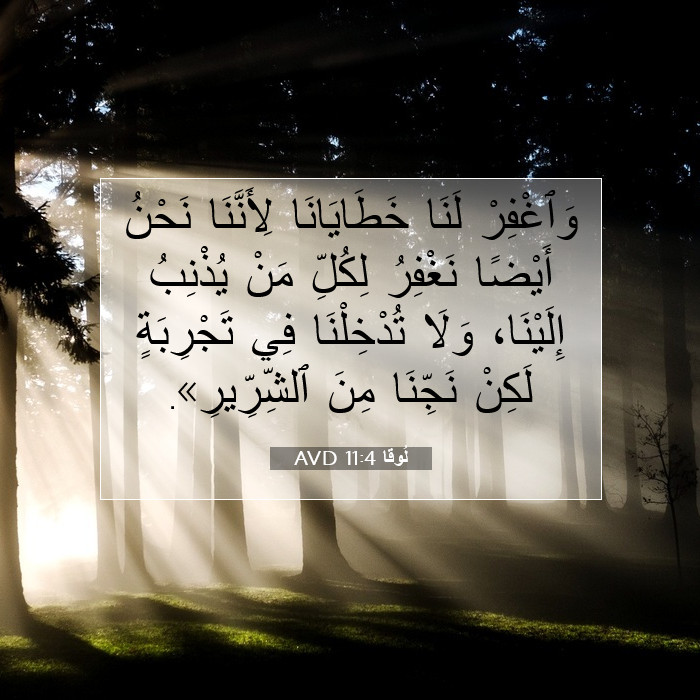 وَٱغْفِرْ لَنَا خَطَايَانَا لِأَنَّنَا نَحْنُ
أَيْضًا نَغْفِرُ لِكُلِّ مَنْ يُذْنِبُ
إِلَيْنَا، وَلَا تُدْخِلْنَا فِي تَجْرِبَةٍ
لَكِنْ نَجِّنَا مِنَ ٱلشِّرِّيرِ».
لُوقَا 11:4 AVD